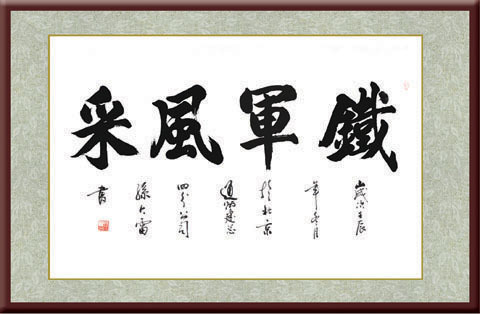 鐵軍風采
歲次壬辰
年冬月
於北京
道建总
四分公司
孫大雷
書